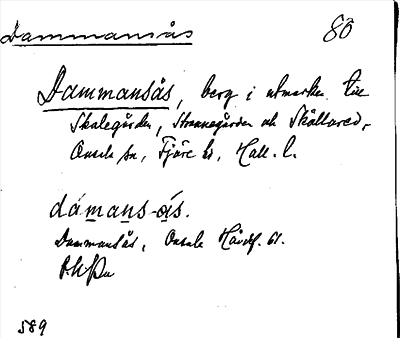 Dammansås 80
Dammansås, berg i utmarken till
Skalegården, Strannegården och Skållared,
Onsala sn, Fjäre hd, Hall. l.
dámans-ås.
Dammansås, Onsala Håvdf. 61.
589